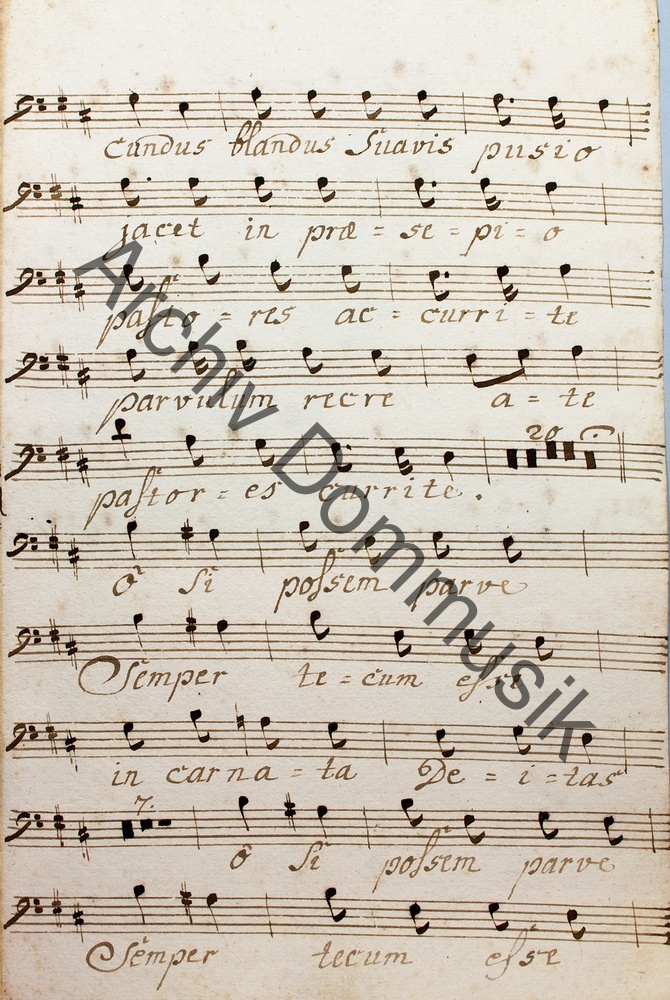 cundus blandus Suavis pusio
jacet in præ = se = pi = o
pasto = res ac = curri = te
parvulum recre a = te
20
pastor = es currite.
O Si possem parve
Semper te = cum esse
in carna = ta De = i = tas
7.
ô Si possem parve
Semper tecum esse
Archiv Dommusik